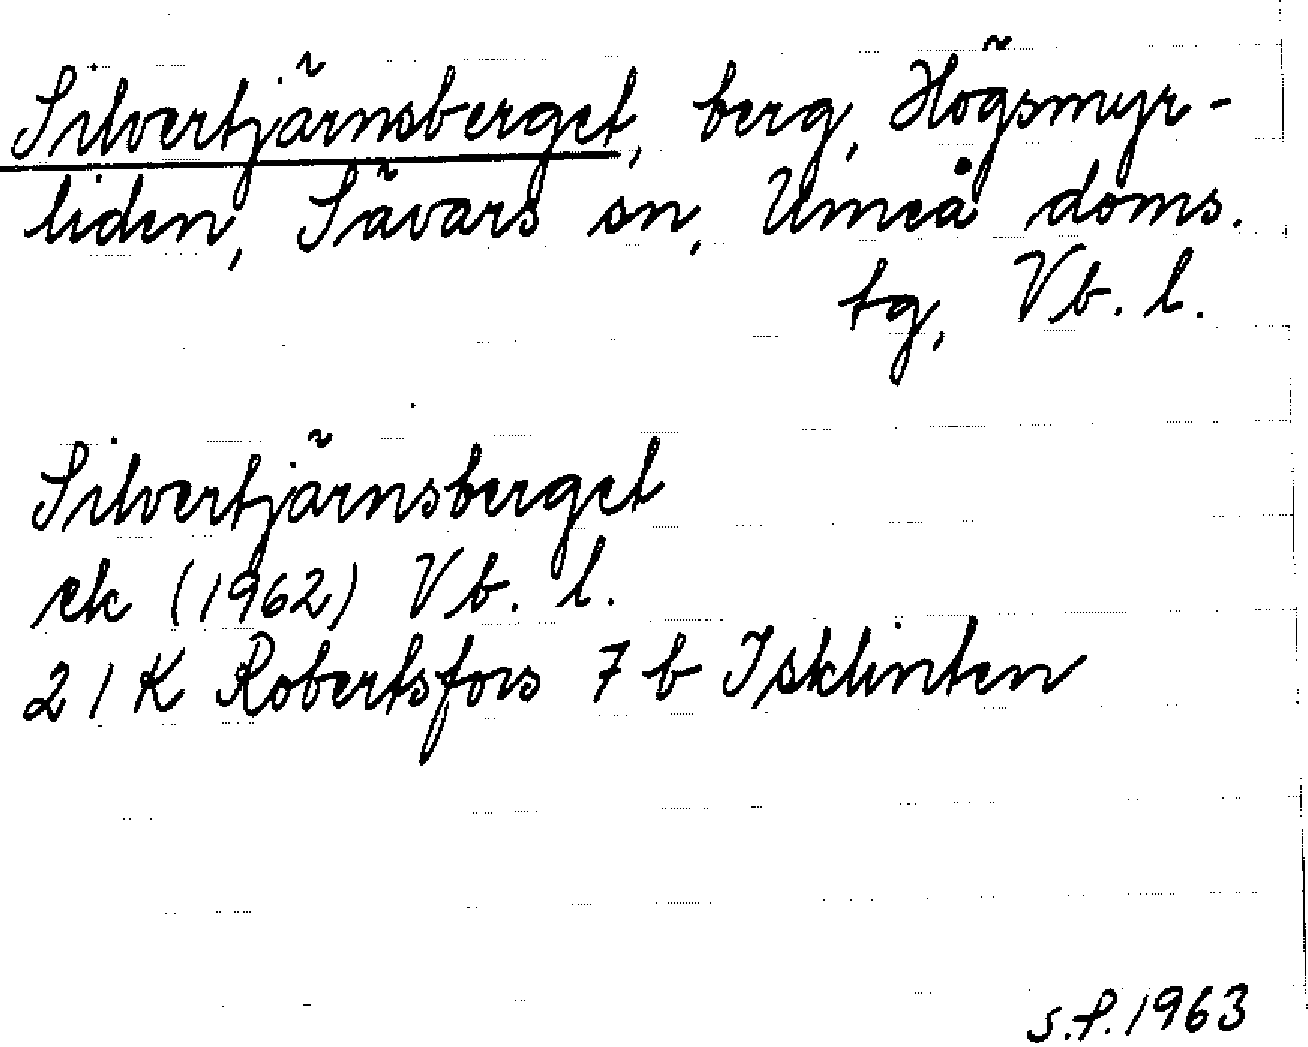 Silvertjärnsberget, berg, Högsmyr-
liden, Sävars sn, Umeå doms.
tg, Vb. l.
Silvertjärnsberget
ek (1962) Vb. l.
21 K Robertsfors 7 b Isklinten
S.P. 1963